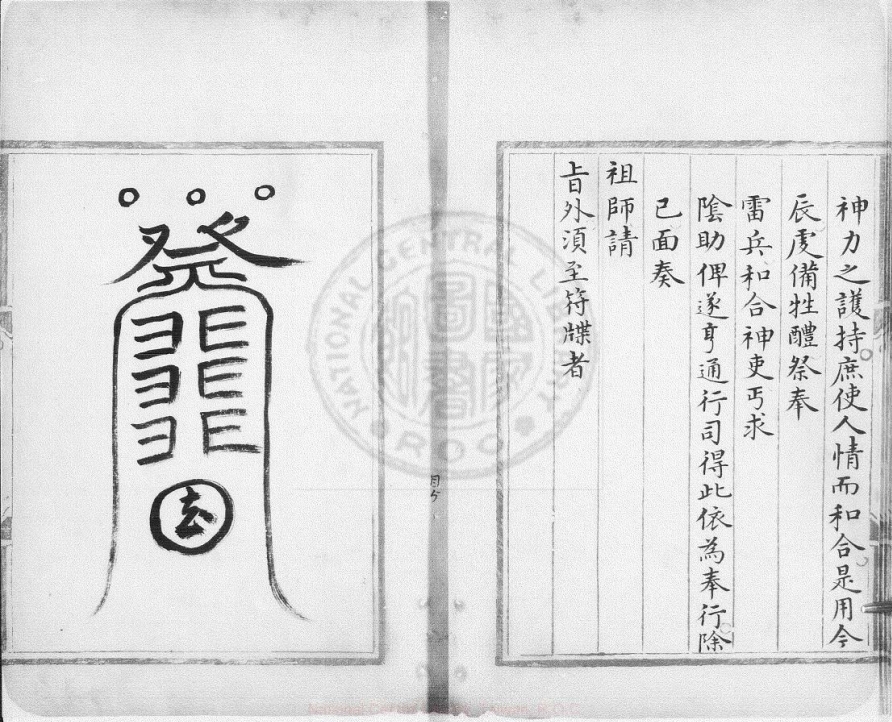 神力之護持庶使人情而和合是用今
辰虔備牲醴祭奉
雷兵和合神吏丐求
陰助俾遂亨通行司得此依為奉行除
已面奏
祖師請
旨外湏至符牒者
NATIONAL CENTRAL LIBRARY
國家圖書館
ROC